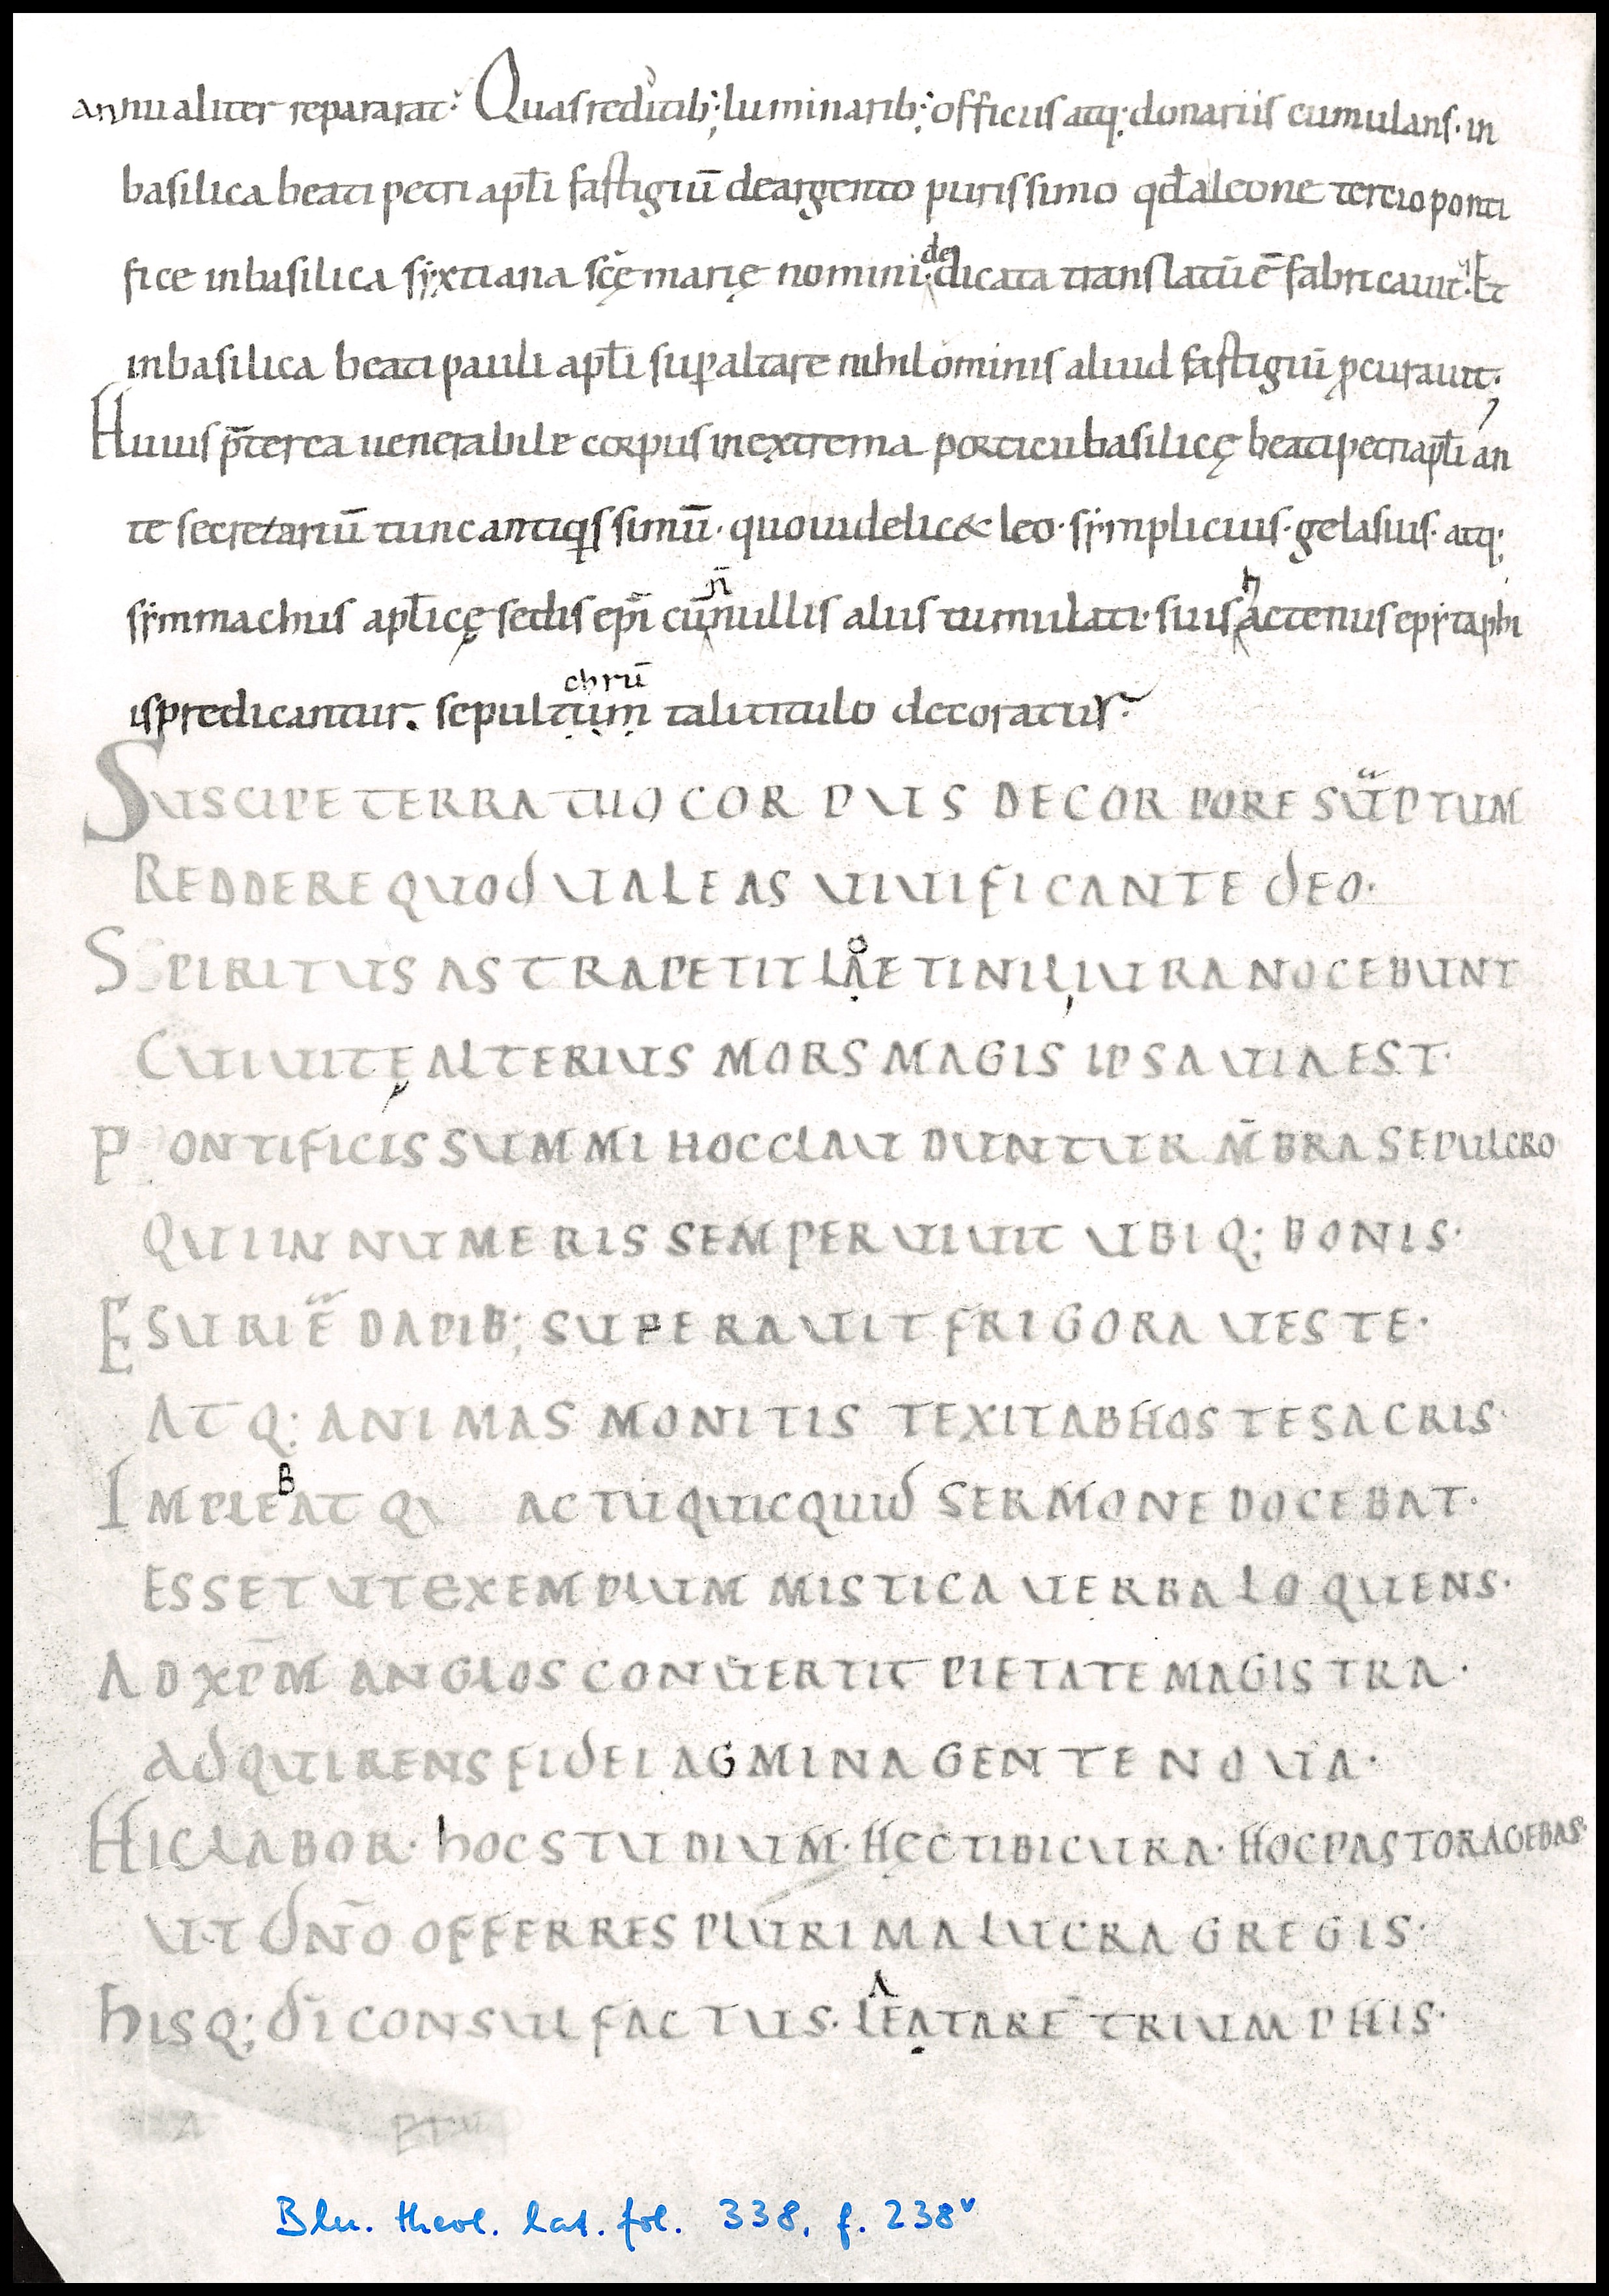 annualiter repararat. Quas reditib; luminarib; officiis atq; donariis cumulans. in
basilica beati petri apłi fastigiū de argento purissimo qđ a leone tercio ponti
fice in basilica syxtiana scę marię nomini dedicata translatū ē fabricauit. Et
in basilica beati pauli apłi sup altare nihilominis aliud fastigiū pcurauit;
Huius p̄terea uenerabile corpus in extrema porticu basilicę beati petri apłi an
te secretariū tunc antiqissimū. quo uidelic& leo. symplicius. gelasius. atq;
symmachus apłicę sedis epi cū n̄nullis aliis tumulati. suis hactenus epytaphi
is predicantur. sepultum chrū tali titulo decoratur.
SUSCIPE TERRA TUO CORPUS DE CORPORE SŪPTUM
REDDERE QUOD UALEAS UIUIFICANTE DEO.
SPIRITUS ASTRA PETIT LAETI NIL IURA NOCEBUNT
CUI UITĘ ALTERIUS MORS MAGIS IPSA UIA EST.
PONTIFICIS SUMMI HOC CLAUDUNTUR M̄BRA SEPULCRO
QUI INNUMERIS SEMPER UIUIT UBIQ; BONIS.
ESURIĒ DAPIB; SUPERAUIT FRIGORA UESTE.
ATQ; ANIMAS MONITIS TEXIT AB HOSTE SACRIS.
IMPLEBAT Q ACTU QUICQUID SERMONE DOCEBAT.
ESSET UT EXEMPLUM MISTICA UERBA LOQUENS.
AD XP̄M ANGLOS CONUERTIT PIETATE MAGISTRA.
ADQUIRENS FIDEI AGMINA GENTE NOUA.
HIC LABOR. HOC STUDIUM. HĘC TIBI CURA. HOC PASTOR AGEBAS.
UT DN̄O OFFERRES PLURIMA LUCRA GREGIS.
HISQ; DĪ CONSUL FACTUS. LAETARE TRIUMPHIS.
Bln. theol. lat. fol. 338, f. 238v